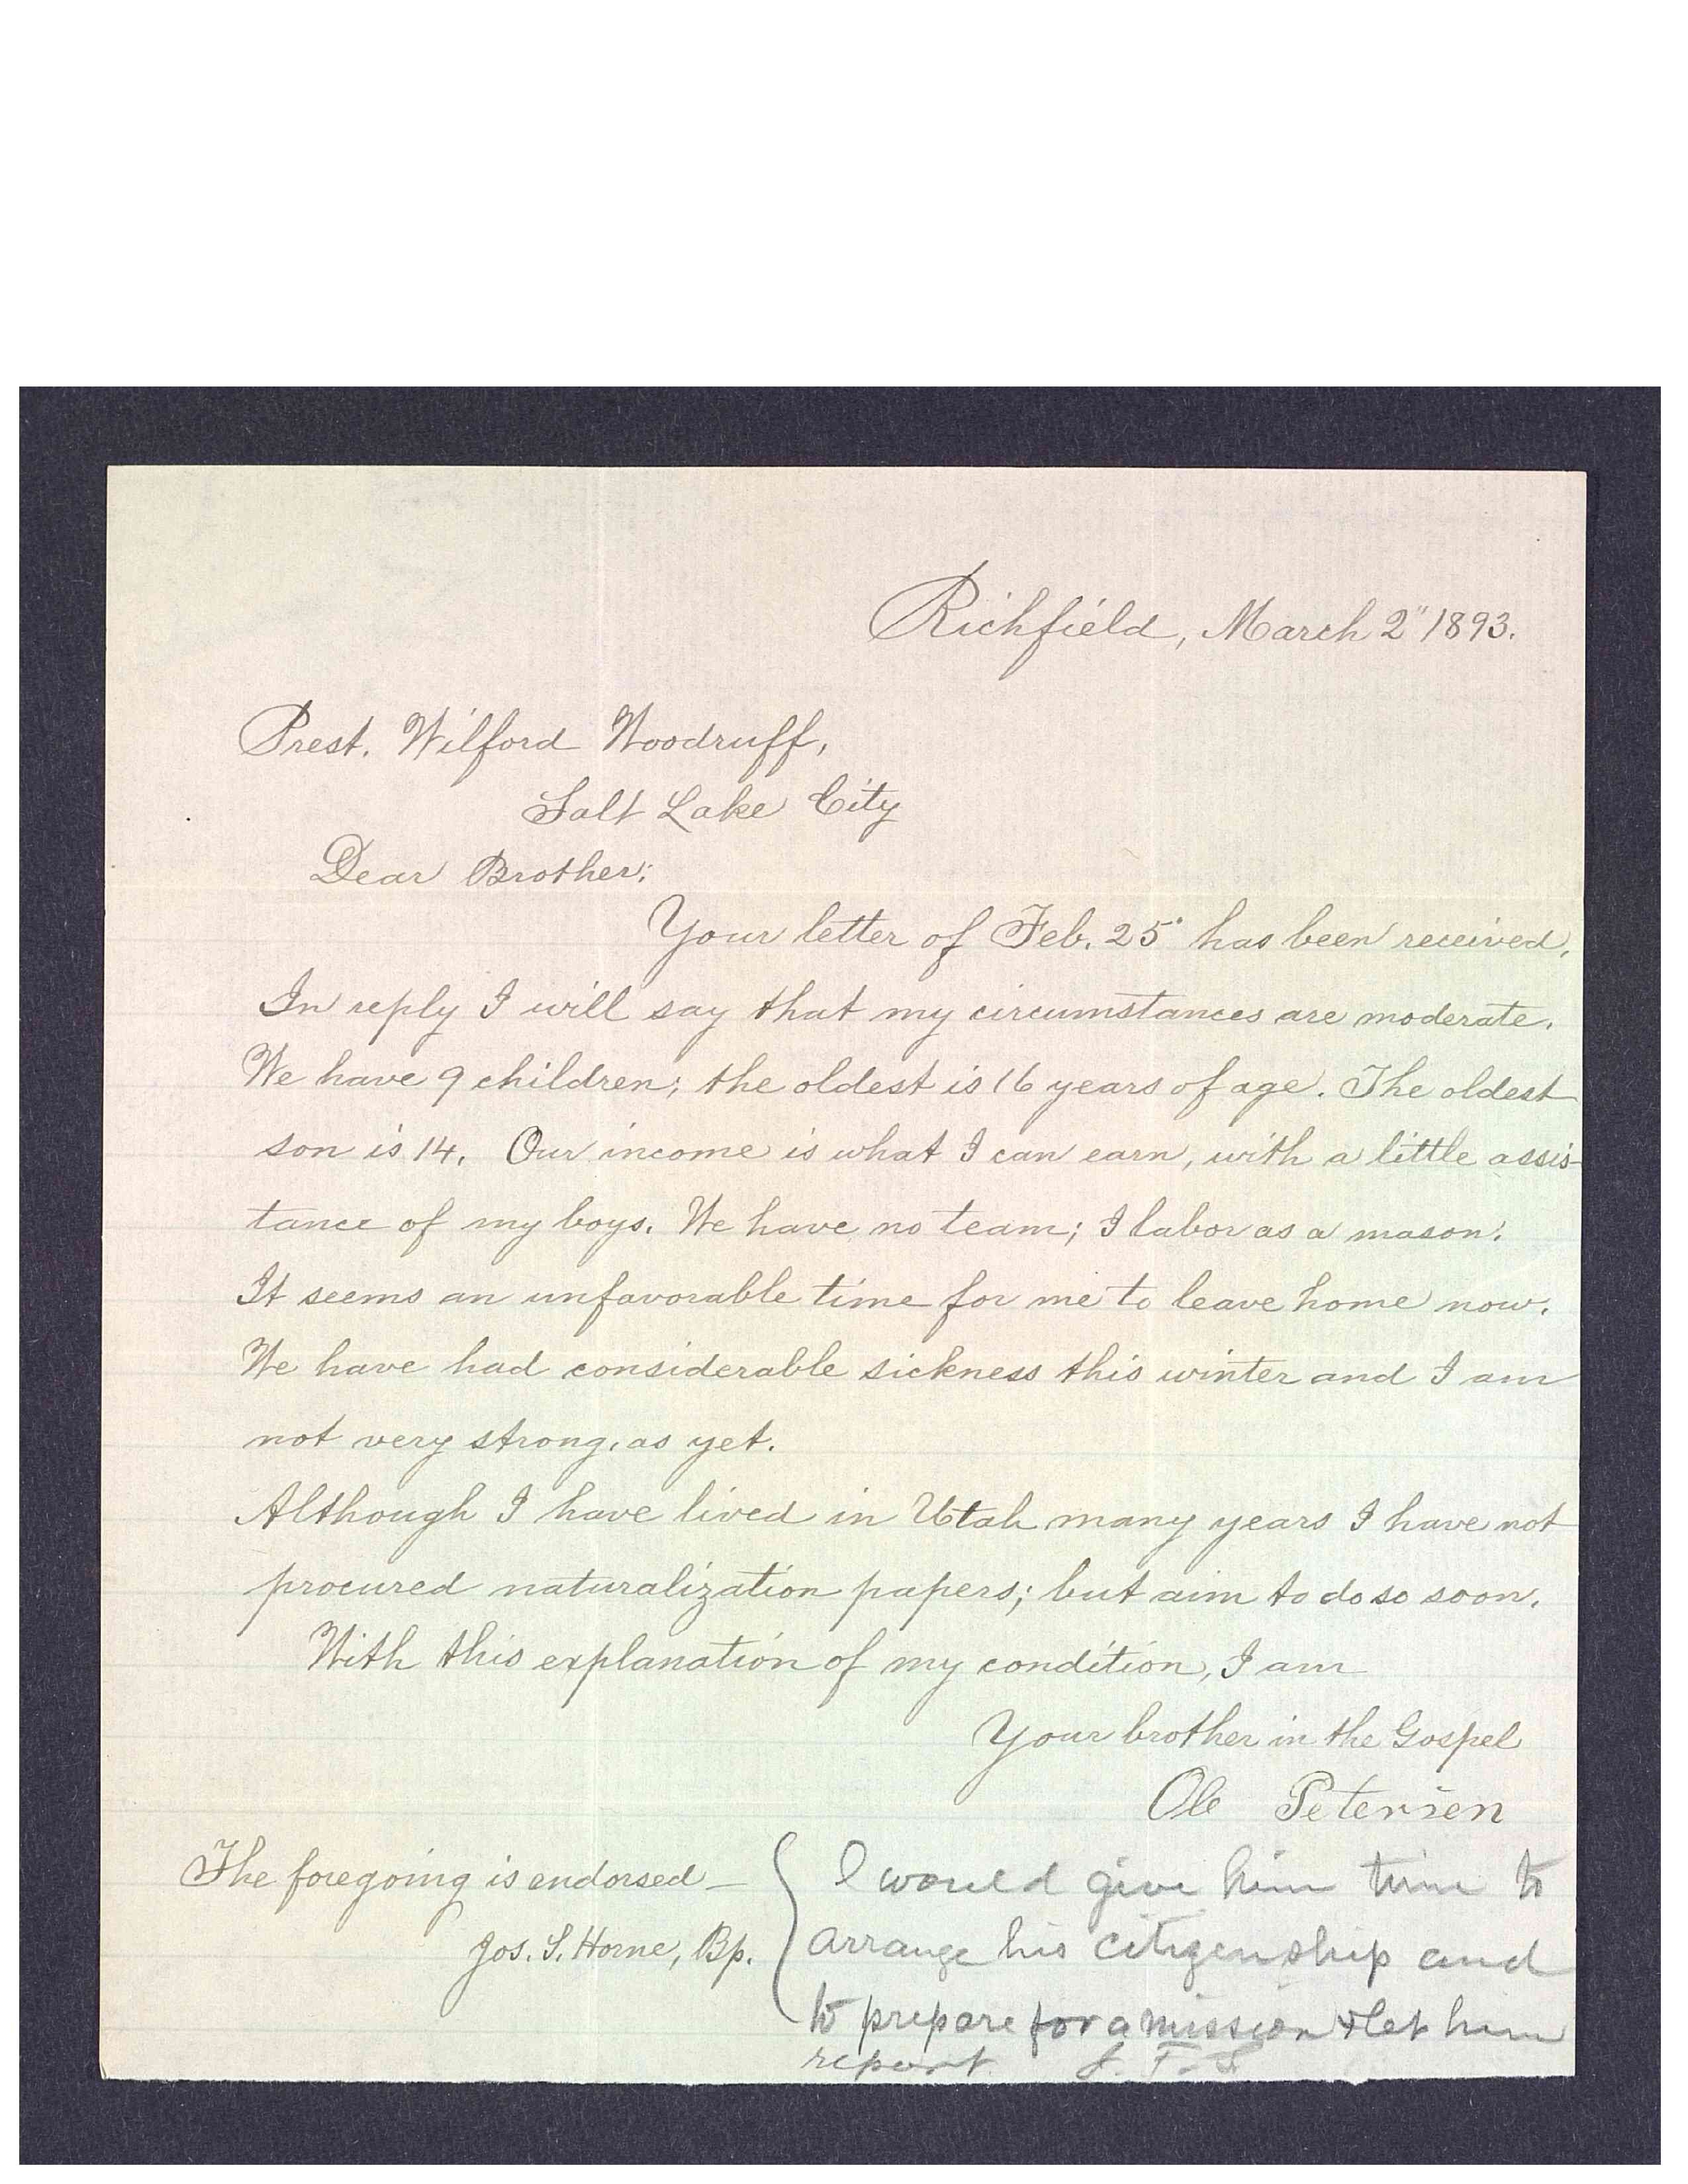 Richfield, March 2" 1893.
Prest. Wilford Woodruff,
Salt Lake City
Dear Brother:
Your letter of Feb. 25" has been received.
In reply I will say that my circumstances are moderate.
We have 9 children; the oldest is 16 years of age. The oldest
son is 14. Our income is what I can earn, with a little assis-
tance of my boys. We have no team; I labor as a mason.
It seems an unfavorable time for me to leave home now.
We have had considerable sickness this winter and I am
not very strong, as yet.
Although I have lived in Utah many years I have not
procured naturalization papers; but aim to do so soon.
With this explanation of my condition, I am
Your brother in the Gospel
Ole Petersen
The foregoing is endorsed—
Jos. S. Horne, Bp.
I would give him time to
arrange his citizenship and
to prepare for a mission & let him
report. J. F. S.